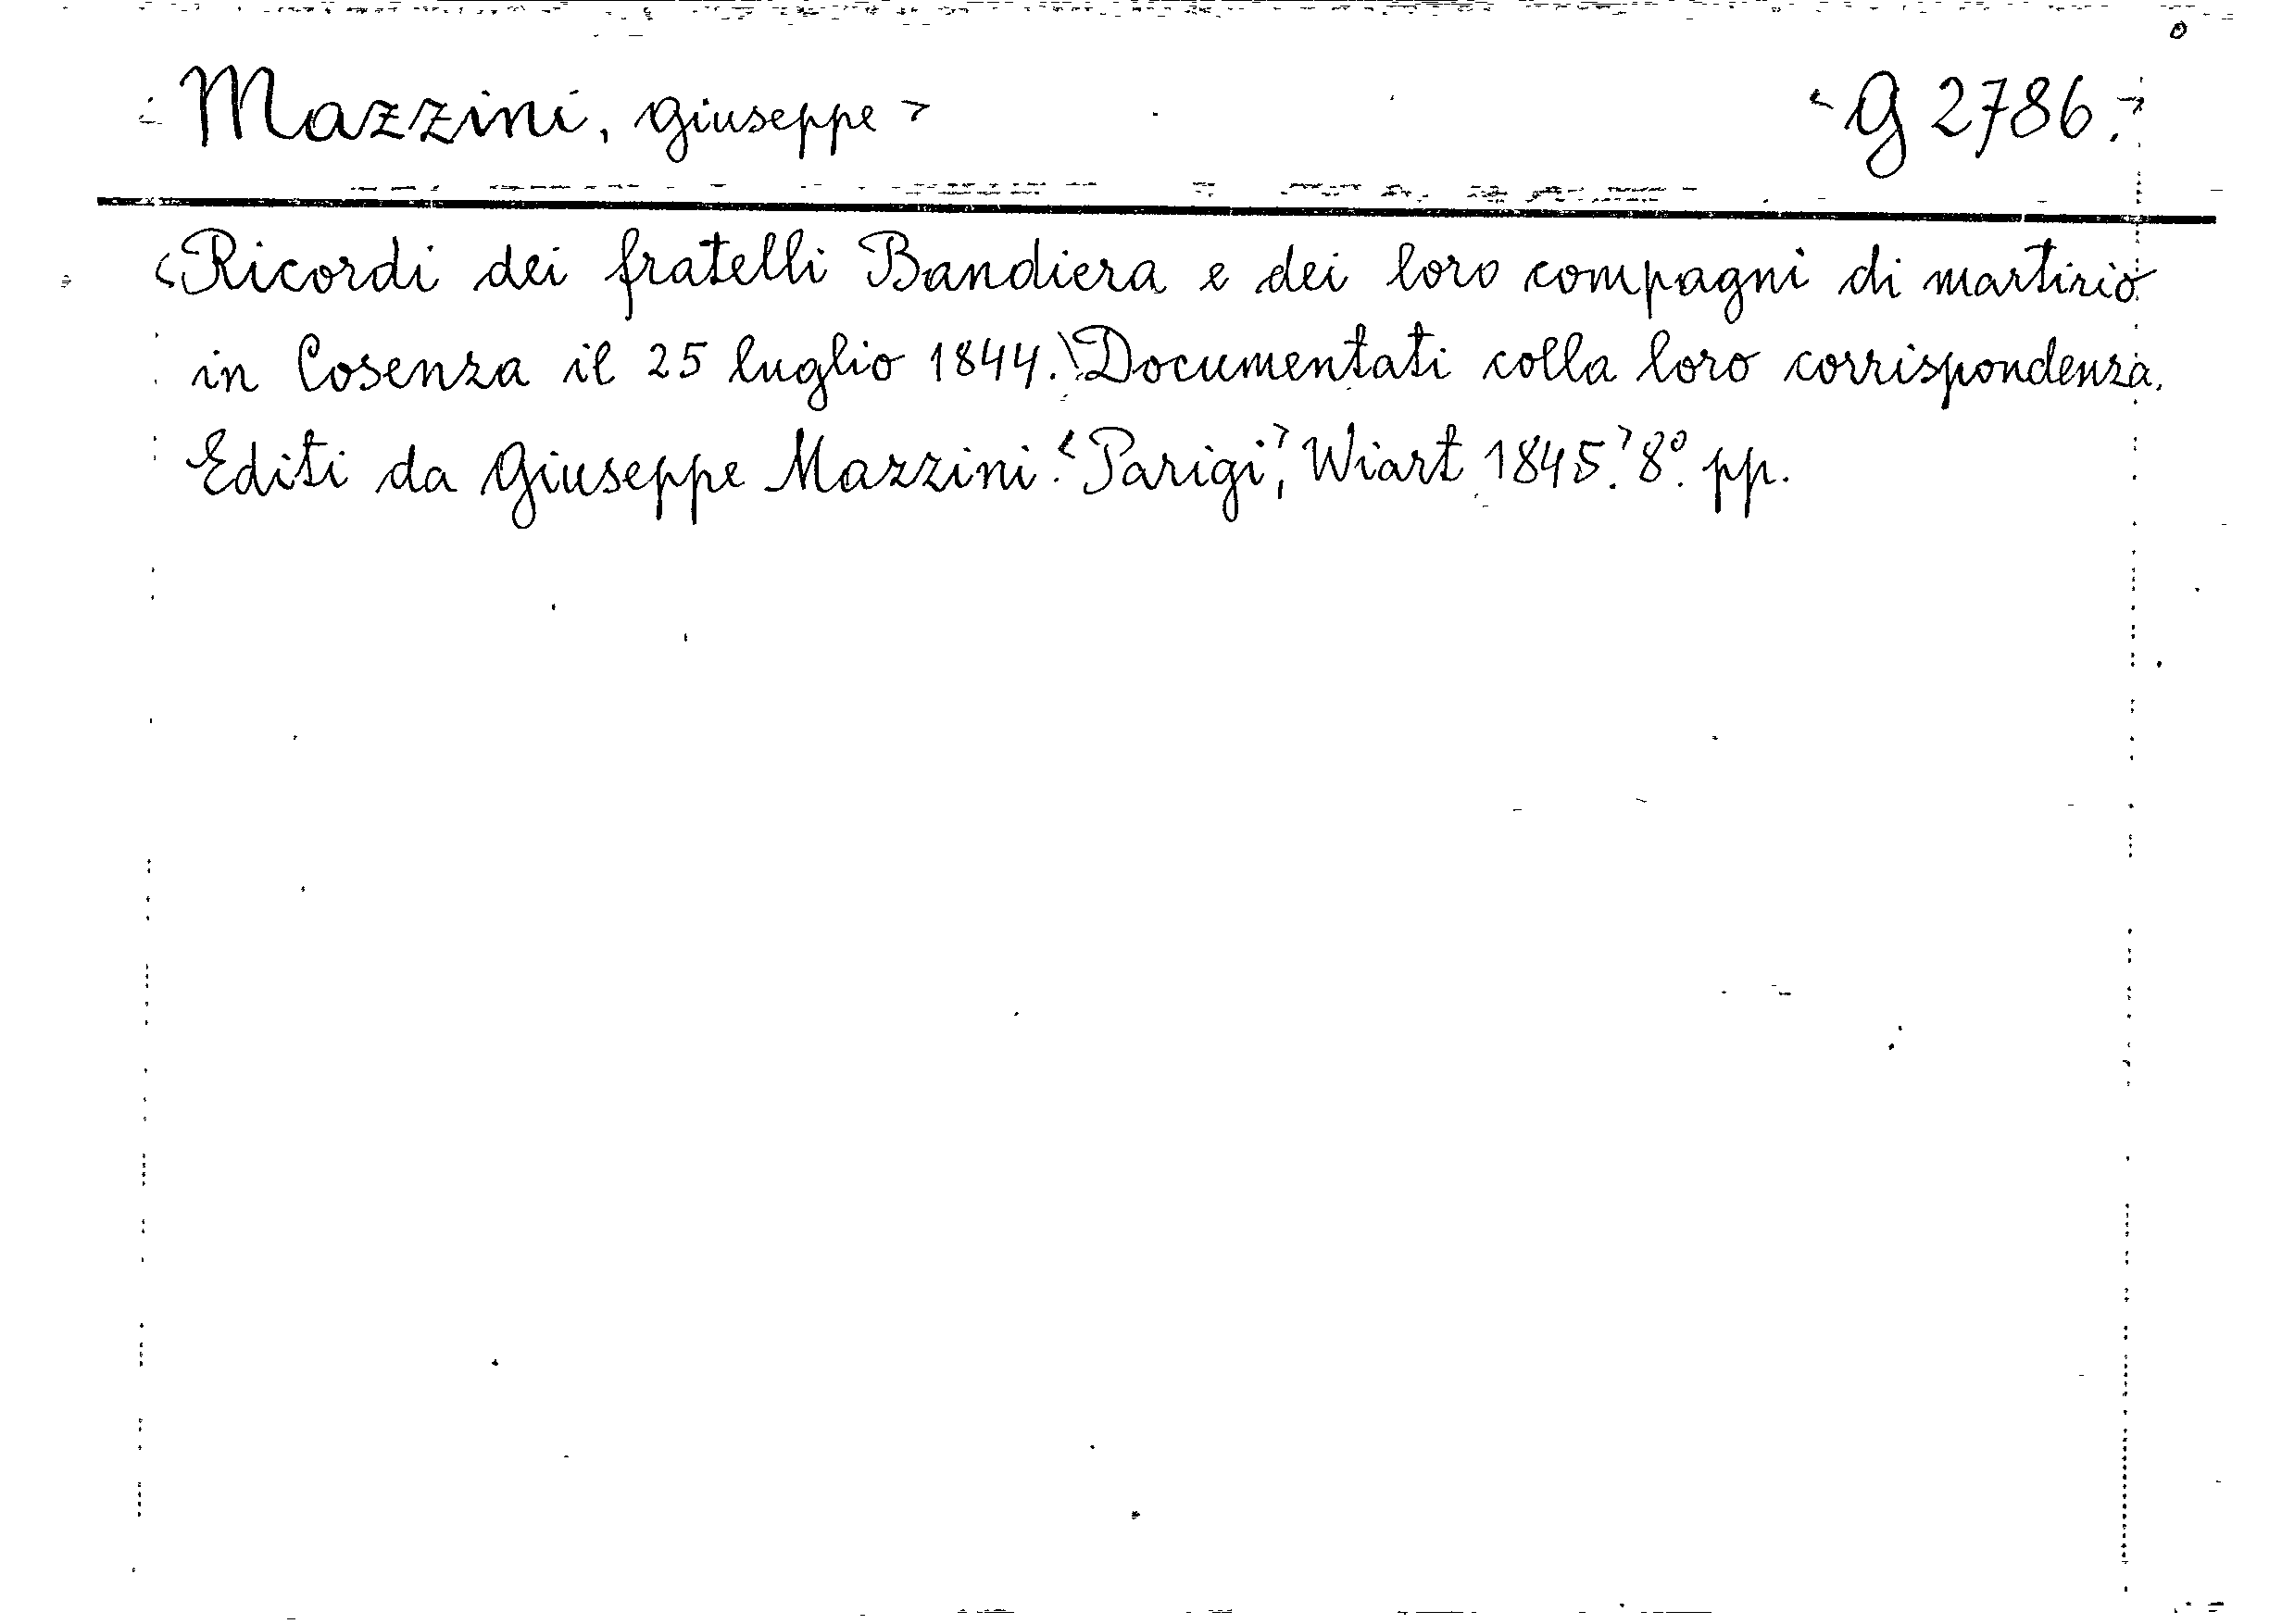 Mazzini, Giuseppe > < G 2786. >
<Ricordi dei fratelli Bandiera e dei loro compagni di martirio
in Cosenza il 25 luglio 1844.\Documentati colla loro corrispondenza.
Editi da Giuseppe Mazzini. <Parigi>, Wiart 1845.> 8°. pp.